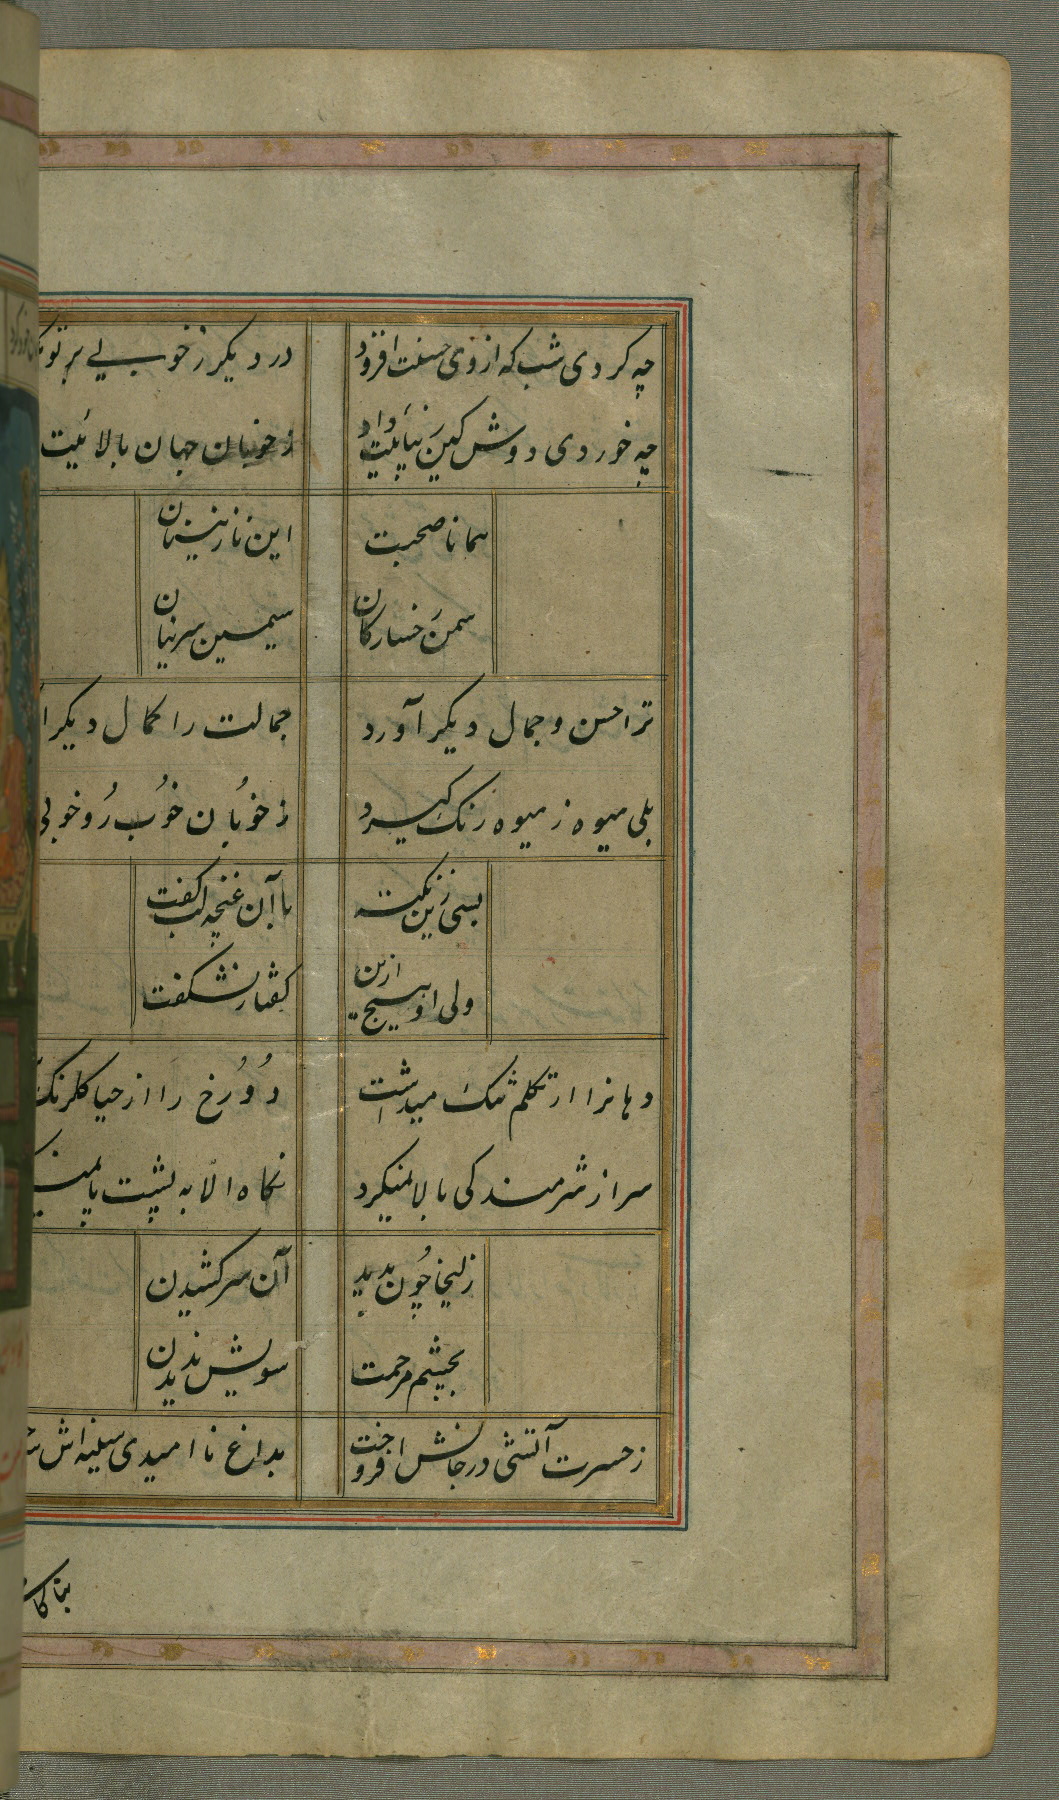 چه کردی شب که از وی حسنت افزود در دیکر ز خوبی بر تو
چه خوردی دوش کین زیبائیت داد ز خوبان جهان بالائیت
همانا صحبت این نازنینان
سمن رخسارکان سیمین سرنیان
ترا حسن و جمال دیکر آورد جمالت را کمال دیکر
بلی میوه ز میوه رنک کیرد ز خوبان خوب رو خوبی
بسی زین نکته با آن غنچه لب کفت
ولی او هیچ ازین کفتار نشکفت
دهانرا از تکلم تنک میداشت دو رخ را از حیا کلرنک
سر از شرمندکی بالا نمیکرد نکاه الا به پشت پا
زلیخا چون بدید آن سر کشیدن
بچشم مرحمت سویش ندیدن
ز حسرت آتشی در جانش افروخت بداغ ناامیدی سینه اش
بنا کا